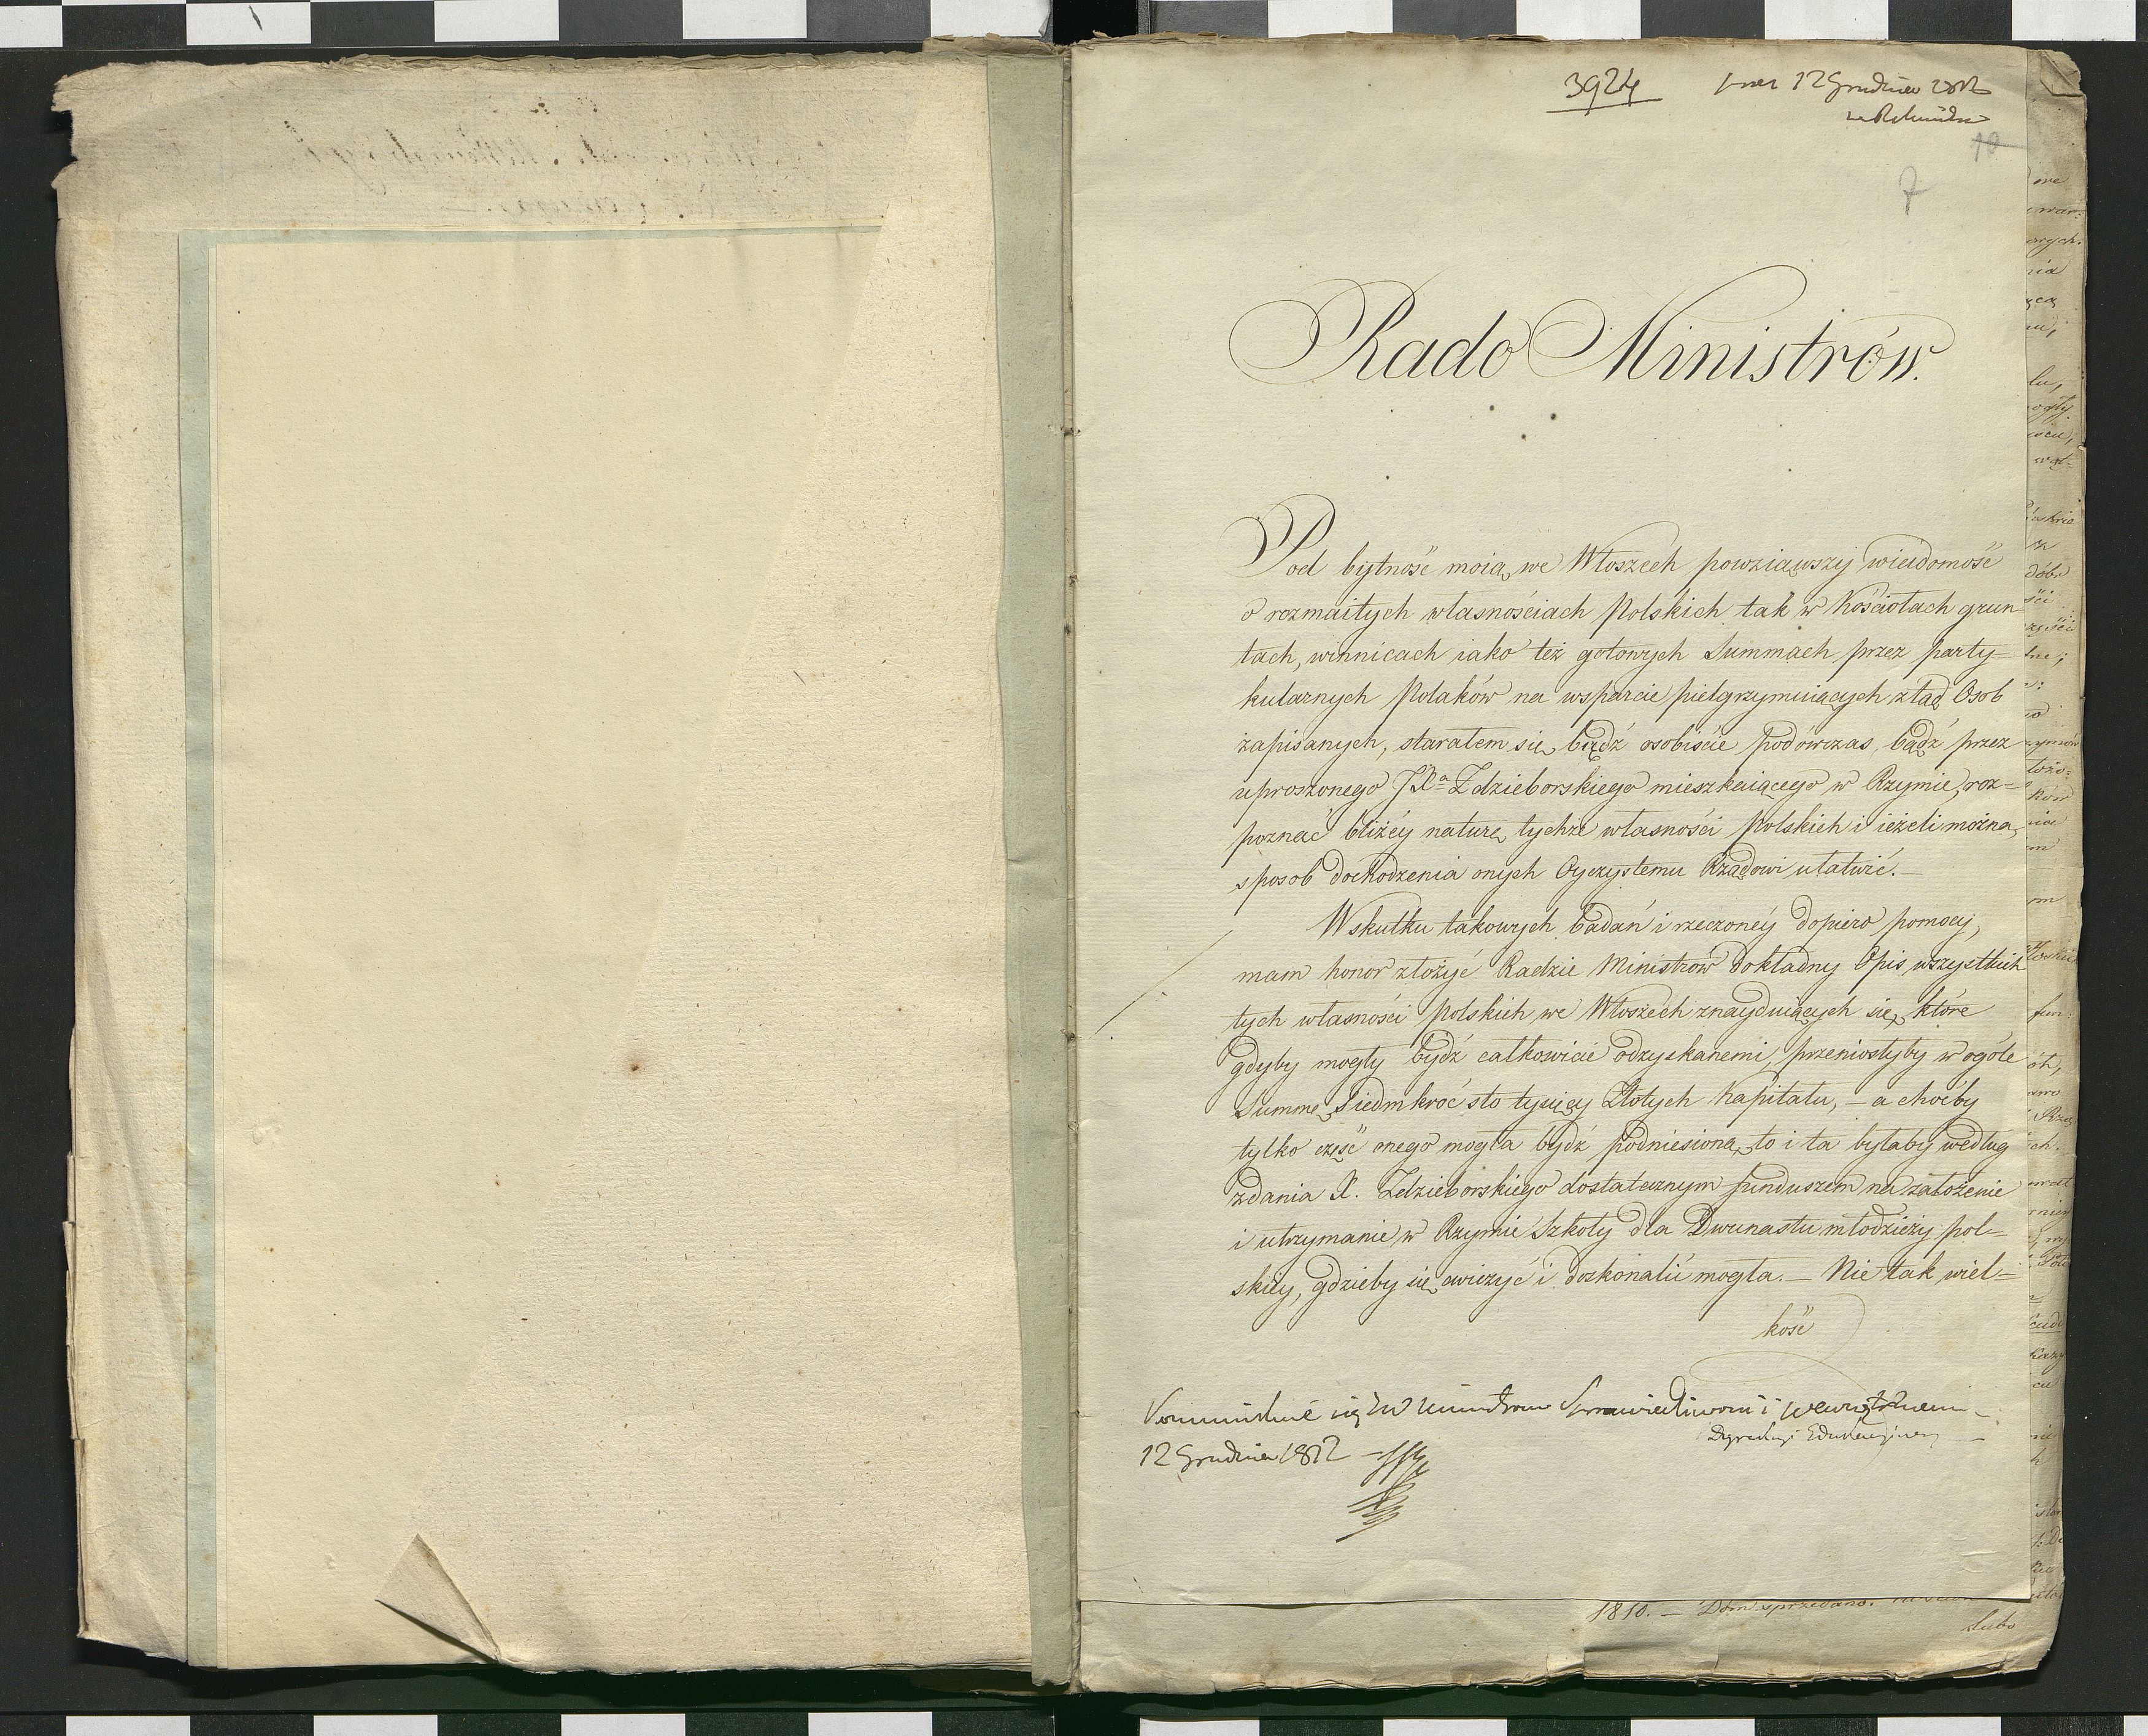 3924 12 Grudnia 1812
10
7
Rado Ministrów.
Pod bytność moią we Włoszech powziąwszy wiadomość
o rozmaitych własnościach Polskich tak w Kościołach grun
tach, winnicach iako też gotowych Summach przez party-
kularnych Polaków na wsparcie pielgrzymuiących ztąd Osob
zapisanych, starałem się bądź osobiście podówczas, bądź przez
uproszonego JXa Zdzieborskiego mieszkaiącego w Rzymie, roz=
poznać bliżéy naturę tychże własności Polskich i ieżeli można,
sposob dochodzenia onych Oyczystemu Rządowi ułatwić.—
Wskutku takowych badań i rzeczonéy dopiero pomocy,
mam honor złożyć Radzie Ministrów dokładny Opis wszystkich
tych własności Polskich we Włoszech znayduiących się, które
gdyby mogły bydź całkowicie odzyskanemi, przeniosłyby w ogóle
Summę Siedmkroć sto tysięcy Złotych Kapitału, — a choćby
tylko część onego mogła bydź podniesioną, to i ta byłaby według
zdania X. Zdzieborskiego dostatecznym funduszem na założenie
i utrzymanie w Rzymie Szkoły dla Dwunastu młodzieży pol=
skiéy, gdzieby się cwiczyć i doskonalić mogła. — Nie tak wiel=
kość
Ministrom Sprawiedliwości i Wewnętrznemu
Dyrekcyi Edukacyjney
12 Grudnia 1812
1810. — Dom sprzedano.
Lubo